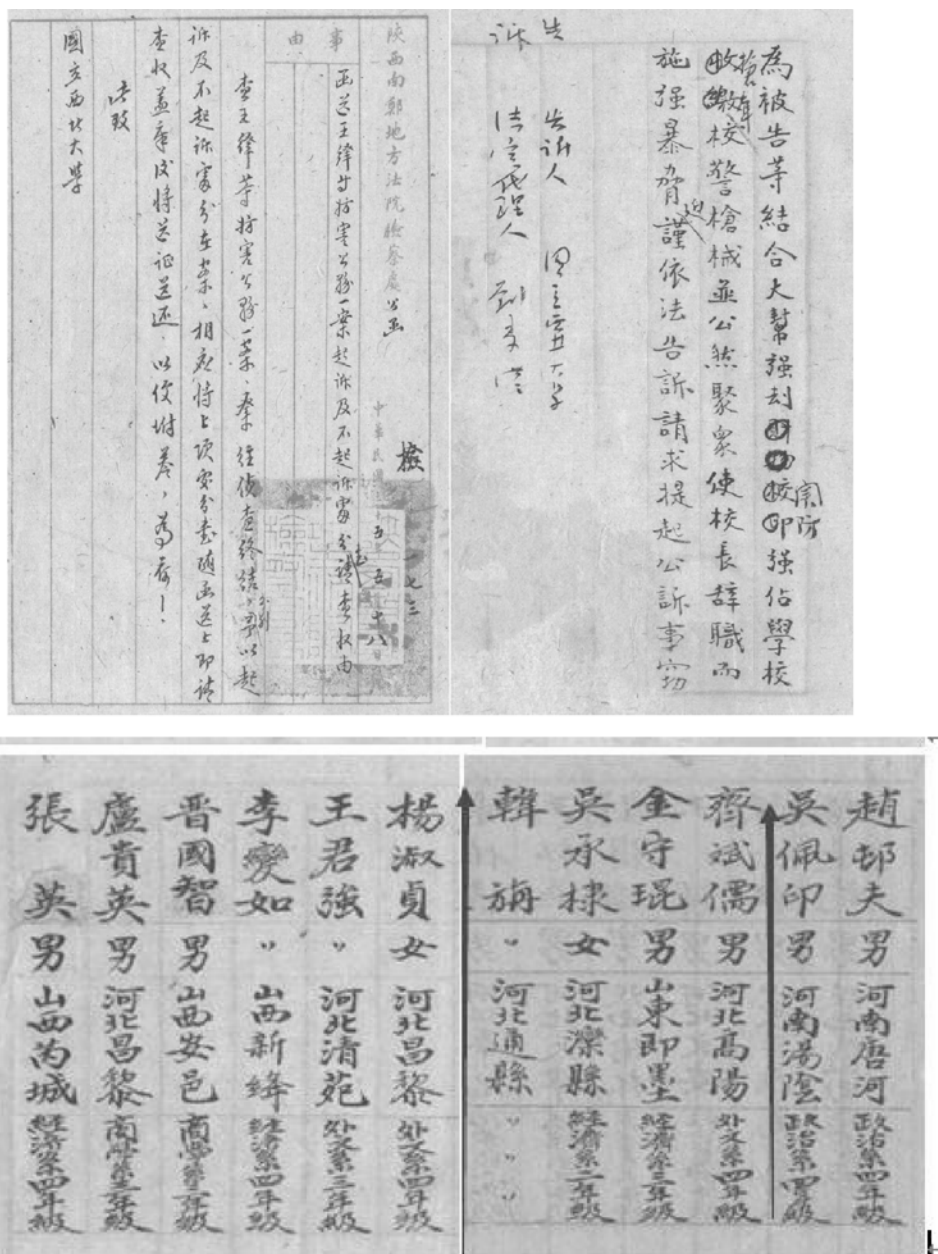 告
訴
為被告等結合大幫强刦校印强佔學校
校警槍械並公然聚眾使校長辭職而
施强暴脅迫謹依法告訴請求提起公訴事竊
告訴人
法定代理人
陝西南鄭地方法院檢察處公函
事由
函送王繹等妨害公務一案起訴及不起訴處分書請查收由
查王繹等妨害公務一案,業經偵查終結,分別予以起
訴及不起訴處分在案,相應將上項處分書隨函送上即請
查收蓋章後將送証送還,以便附卷,為荷!
此致
國立西北大學
趙邨夫 男 河南唐河 政治系四年級
吳佩印 男 河南湯陰 政治系四年級
齊斌儒 男 河北高陽 外文系四年級
金守琨 男 山東即墨 經濟系三年級
吳承棣 女 河北灤縣 經濟系二年級
韓旃 〃 河北通縣 〃 〃 〃
楊淑貞 女 河北昌黎 外文系四年級
王君強 〃 河北清苑 外文系三年級
李變如 〃 山西新絳 經濟系四年級
晋國智 男 山西安邑 商學系二年級
盧貴英 男 河北昌黎 商學系二年級
張英 男 山西芮城 經濟系四年級